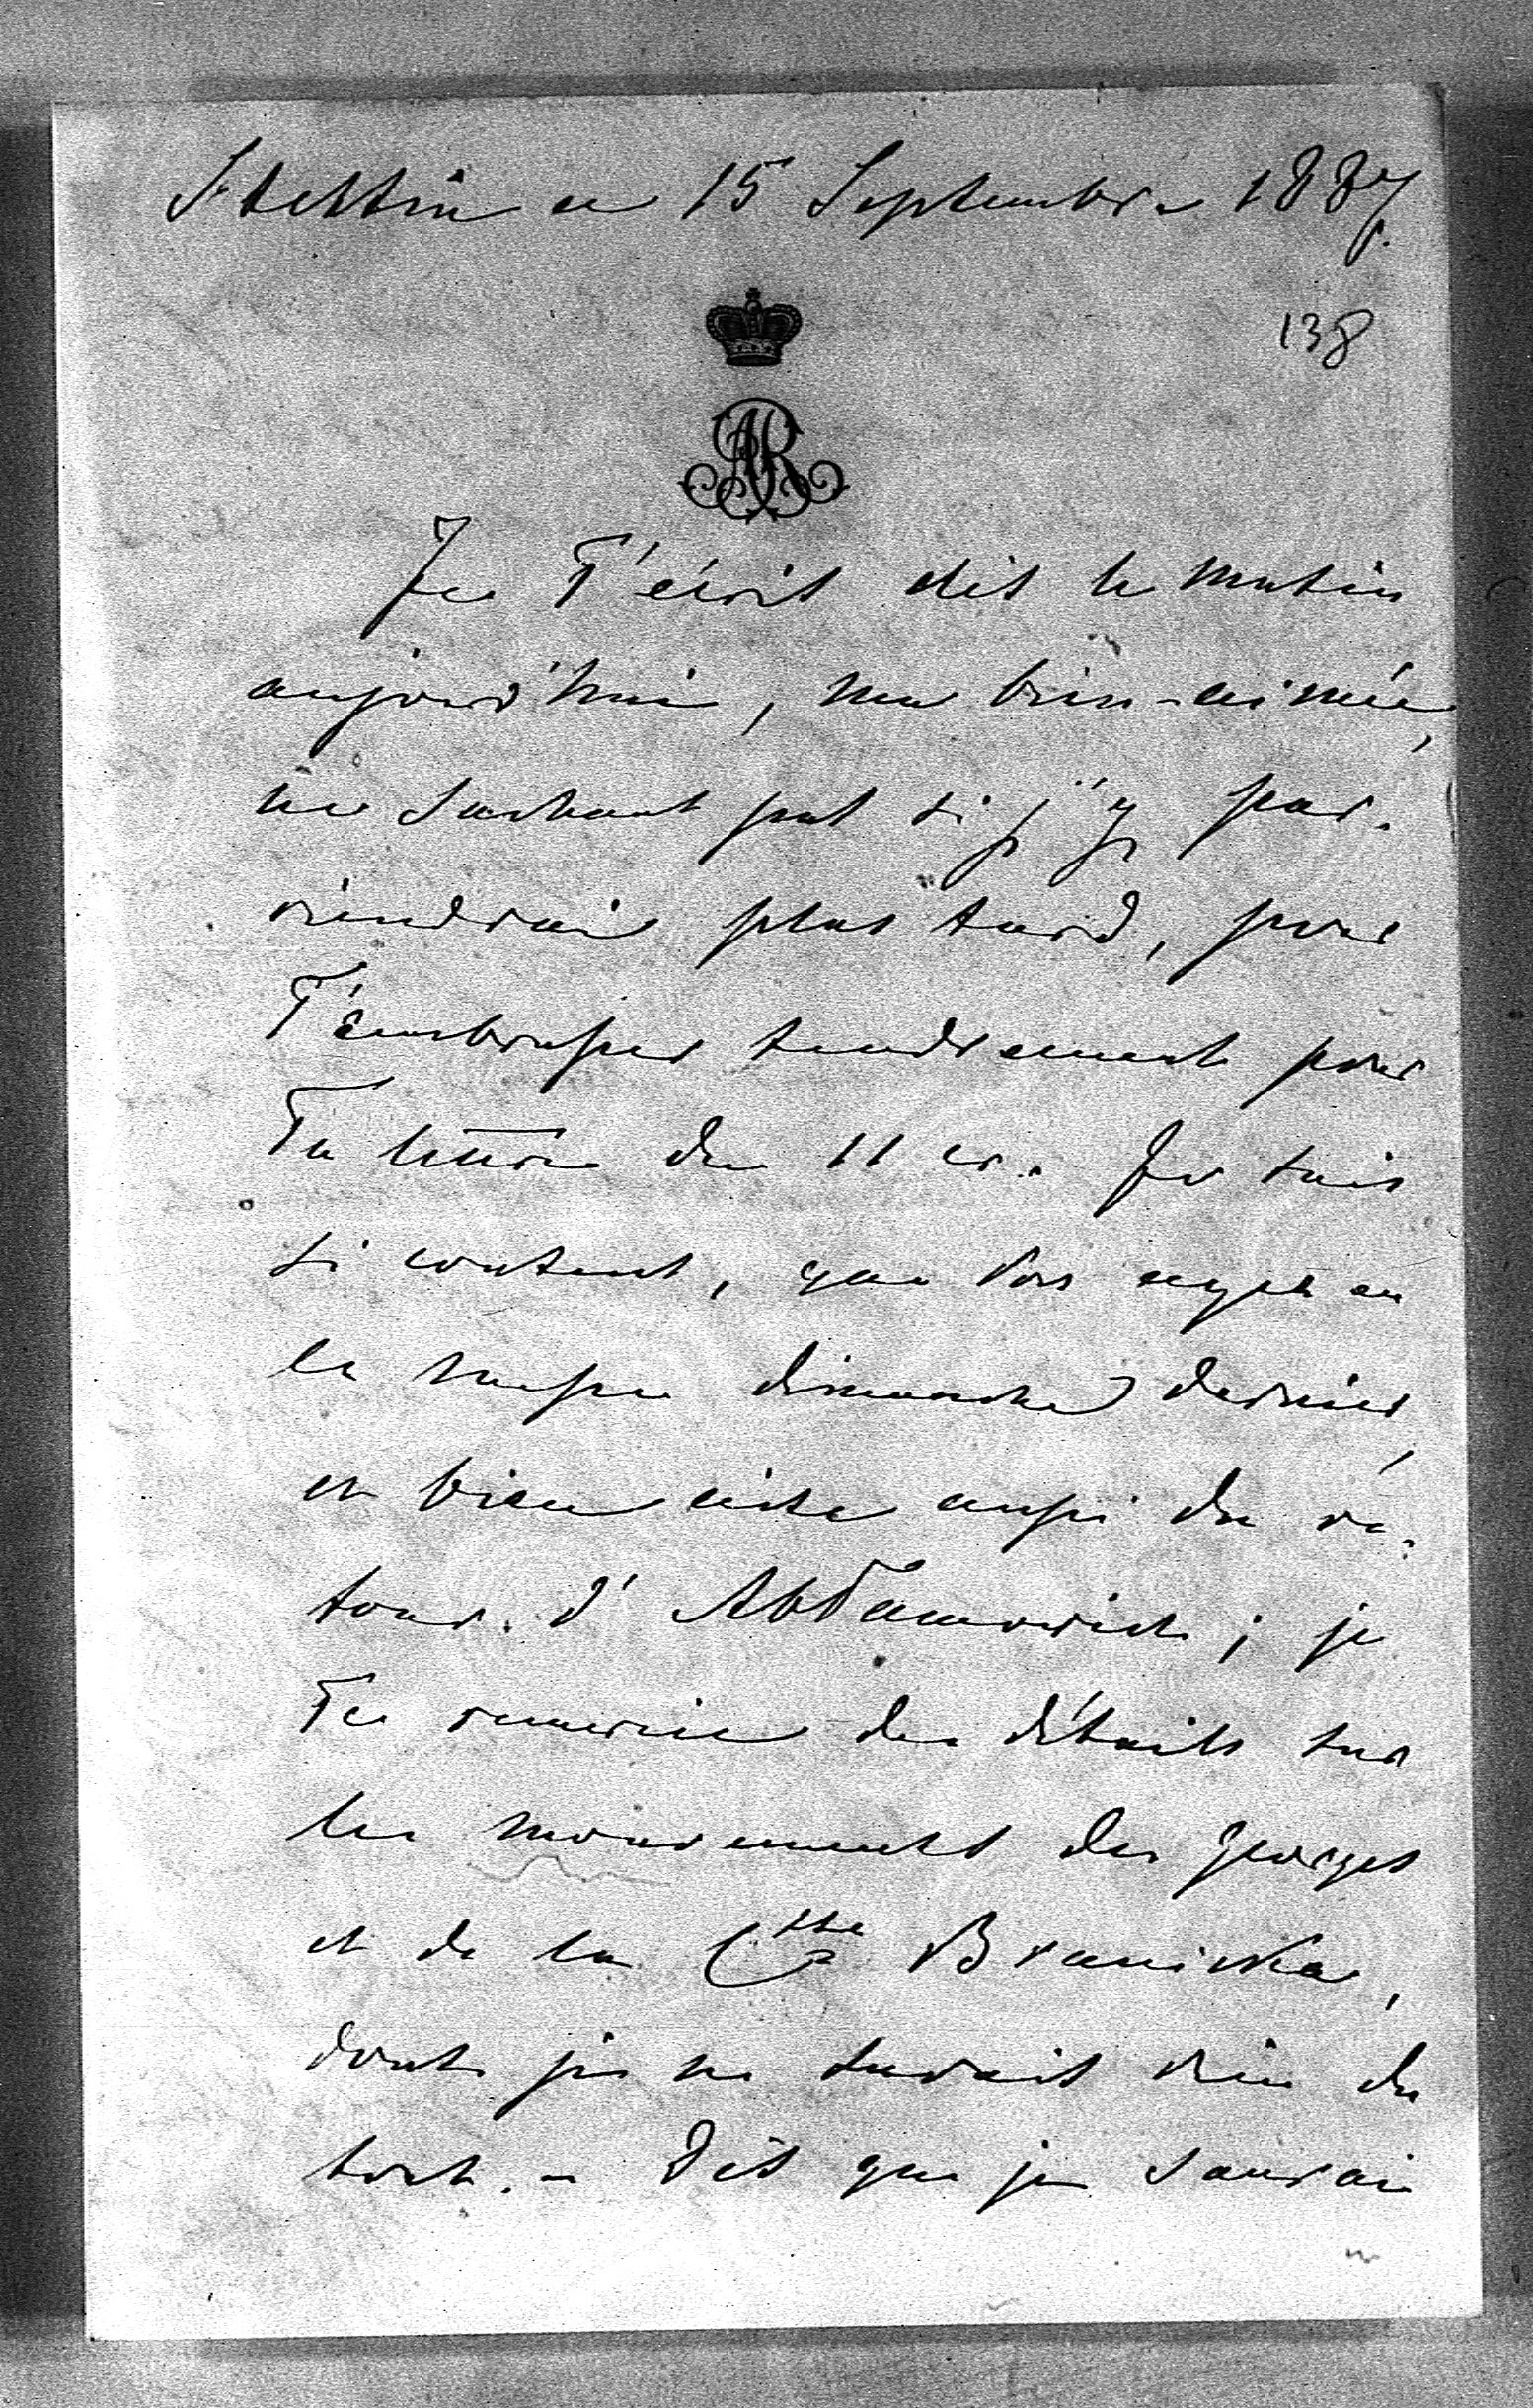 Stettin ce 15 Septembre 1887.
138
AR
Je T'écris dès le matin
aujourd'hui, ma bien-aimée,
ne sachant pas si j'y par-
viendrais plus tard, pour
T'embrasser tendrement pour
Ta lettre du 11 cr. Je suis
si content, que Vous ayez eu
la messe dimanche dernier,
et bien aise aussi du re-
tour d'Abramowich; je
Te remercie des détails sur
les mouvements des Georges
et de la Ctsse Branicka,
dont je ne savais rien du
tout. - Dès que je saurai